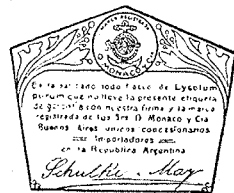 MARCA REGISTRADA
D. MONACO Y CIA
todo frasco de Lysolum
purum que no lleve la presente etiqueta
de garantía con nuestra firma y la marca
registrada de los Sres D. Monaco y Cia
Buenos Aires únicos concesionarios
Importadores
en la República Argentina
Schulke Mayr